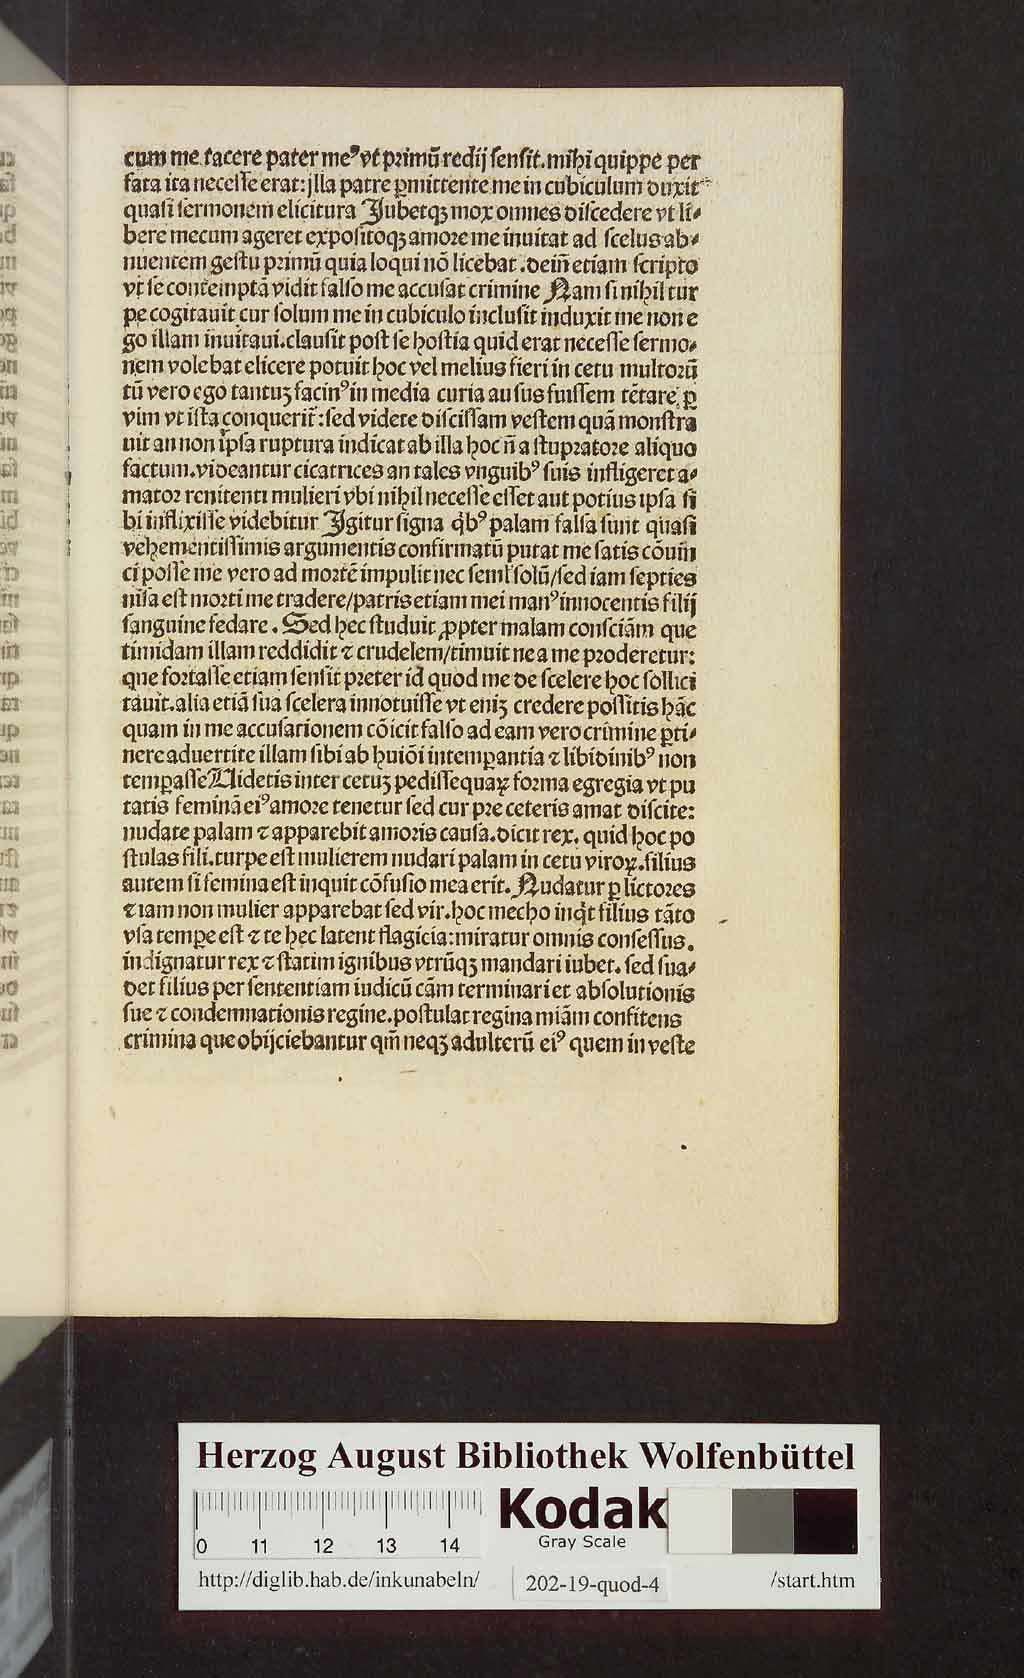 cum me tacere pater meꝰ vt primū redij sensit. mihi quippe per
fata ita necesse erat: illa patre ꝑmittente me in cubiculum duxit
quasi sermonem elicitura Jubetqꝫ mox omnes discedere vt li⸗
bere mecum ageret expositoqꝫ amore me inuitat ad scelus ab⸗
nuentem gestu primū quia loqui nō licebat. dein̄ etiam scripto
vt se contemptā vidit falso me accusat crimine Nam si nihil tur
pe cogitauit cur solum me in cubiculo inclusit induxit me non e
go illam inuitaui. clausit post se hostia quid erat necesse sermo⸗
nem volebat elicere potuit hoc vel melius fieri in cetu multorū
tū vero ego tantuꝫ facinꝰ in media curia ausus fuissem tētare ꝑ
vim vt ista conquerit̄: sed videte discissam vestem quā monstra
uit an non ip̄sa ruptura indicat ab illa hoc n̄ a stupratore aliquo
factum. videantur cicatrices an tales vnguibꝰ suis infligeret a⸗
mator renitenti mulieri vbi nihil necesse esset aut potius ipsa si
bi inflixisse videbitur Igitur signa q̇bꝰ palam falsa sunt quasi
vehementissimis argumentis confirmatū putat me satis cōuin̄
ci posse me vero ad mortē impulit nec seml̄ solū/sed iam septies
nisa est morti me tradere/patris etiam mei manꝰ innocentis filij
sanguine fedare. Sed hec studuit ꝓpter malam consciām que
timidam illam reddidit ⁊ crudelem/timuit ne a me proderetur:
que fortasse etiam sensit preter id quod me de scelere hoc sollici
tauit. alia etiā sua scelera innotuisse vt eniꝫ credere possitis hāc
quam in me accusationem cōicit falso ad eam vero crimine ꝑti⸗
nere aduertite illam sibi ab huiōi intemꝑantia ⁊ libidinibꝰ non
temꝑasse Uidetis inter cetuꝫ pedissequaꝝ forma egregia vt pu
tatis feminā eiꝰ amore tenetur sed cur pre ceteris amat discite:
nudate palam ⁊ apparebit amoris causa. dicit rex. quid hoc po
stulas fili. turpe est mulierem nudari palam in cetu viroꝝ. filius
autem si femina est inquit cōfusio mea erit. Nudatur ꝑ lictores
⁊ iam non mulier apparebat sed vir. hoc mecho inq̇t filius tāto
vsa tempe est ⁊ te hec latent flagicia: miratur omnis consessus.
indignatur rex ⁊ statim ignibus vtrūqꝫ mandari iubet. sed sua⸗
det filius per sententiam iudicū cām terminari et absolutionis
sue ⁊ condemnationis regine. postulat regina miām confitens
crimina que obijciebantur qm̄ neqꝫ adulterū eiꝰ quem in veste
Herzog August Bibliothek Wolfenbüttel
0 11 12 13 14
Kodak
Gray Scale
http://diglib.hab.de/inkunabeln/ 202-19-quod-4 /start.htm